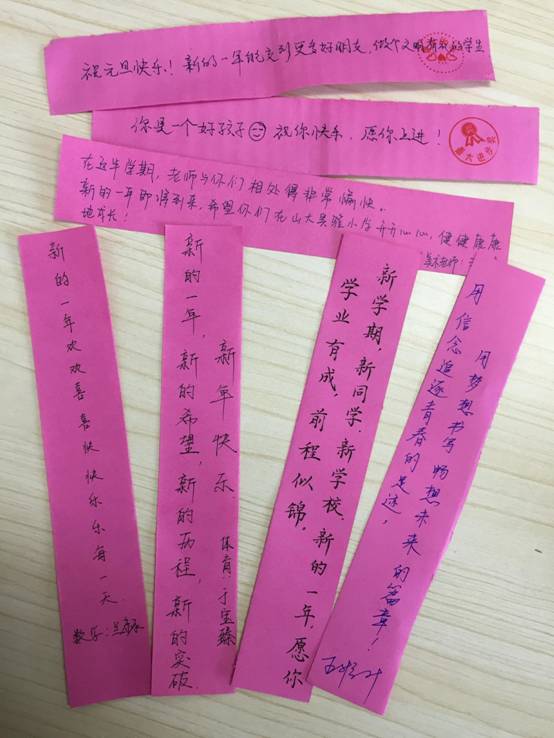 祝元旦快乐！新的一年能交到更多好朋友，做个文明有礼的学生
你是一个好孩子 祝你快乐，愿你上进！
在这半学期，老师与你们相处得非常愉快。
新的一年即将到来，希望你们在山大实验小学开开心心，健健康康
地成长！
美术老师：
新的一年欢欢喜喜快快乐乐每一天
数学：
新的一年，新的希望，新的历程，新的突破
新年快乐
体育：于宝臻
新学期，新同学，新学校，新的一年，愿你
学业有成，前程似锦。
用信念追逐青春的足迹，
用梦想书写畅想未来的篇章！